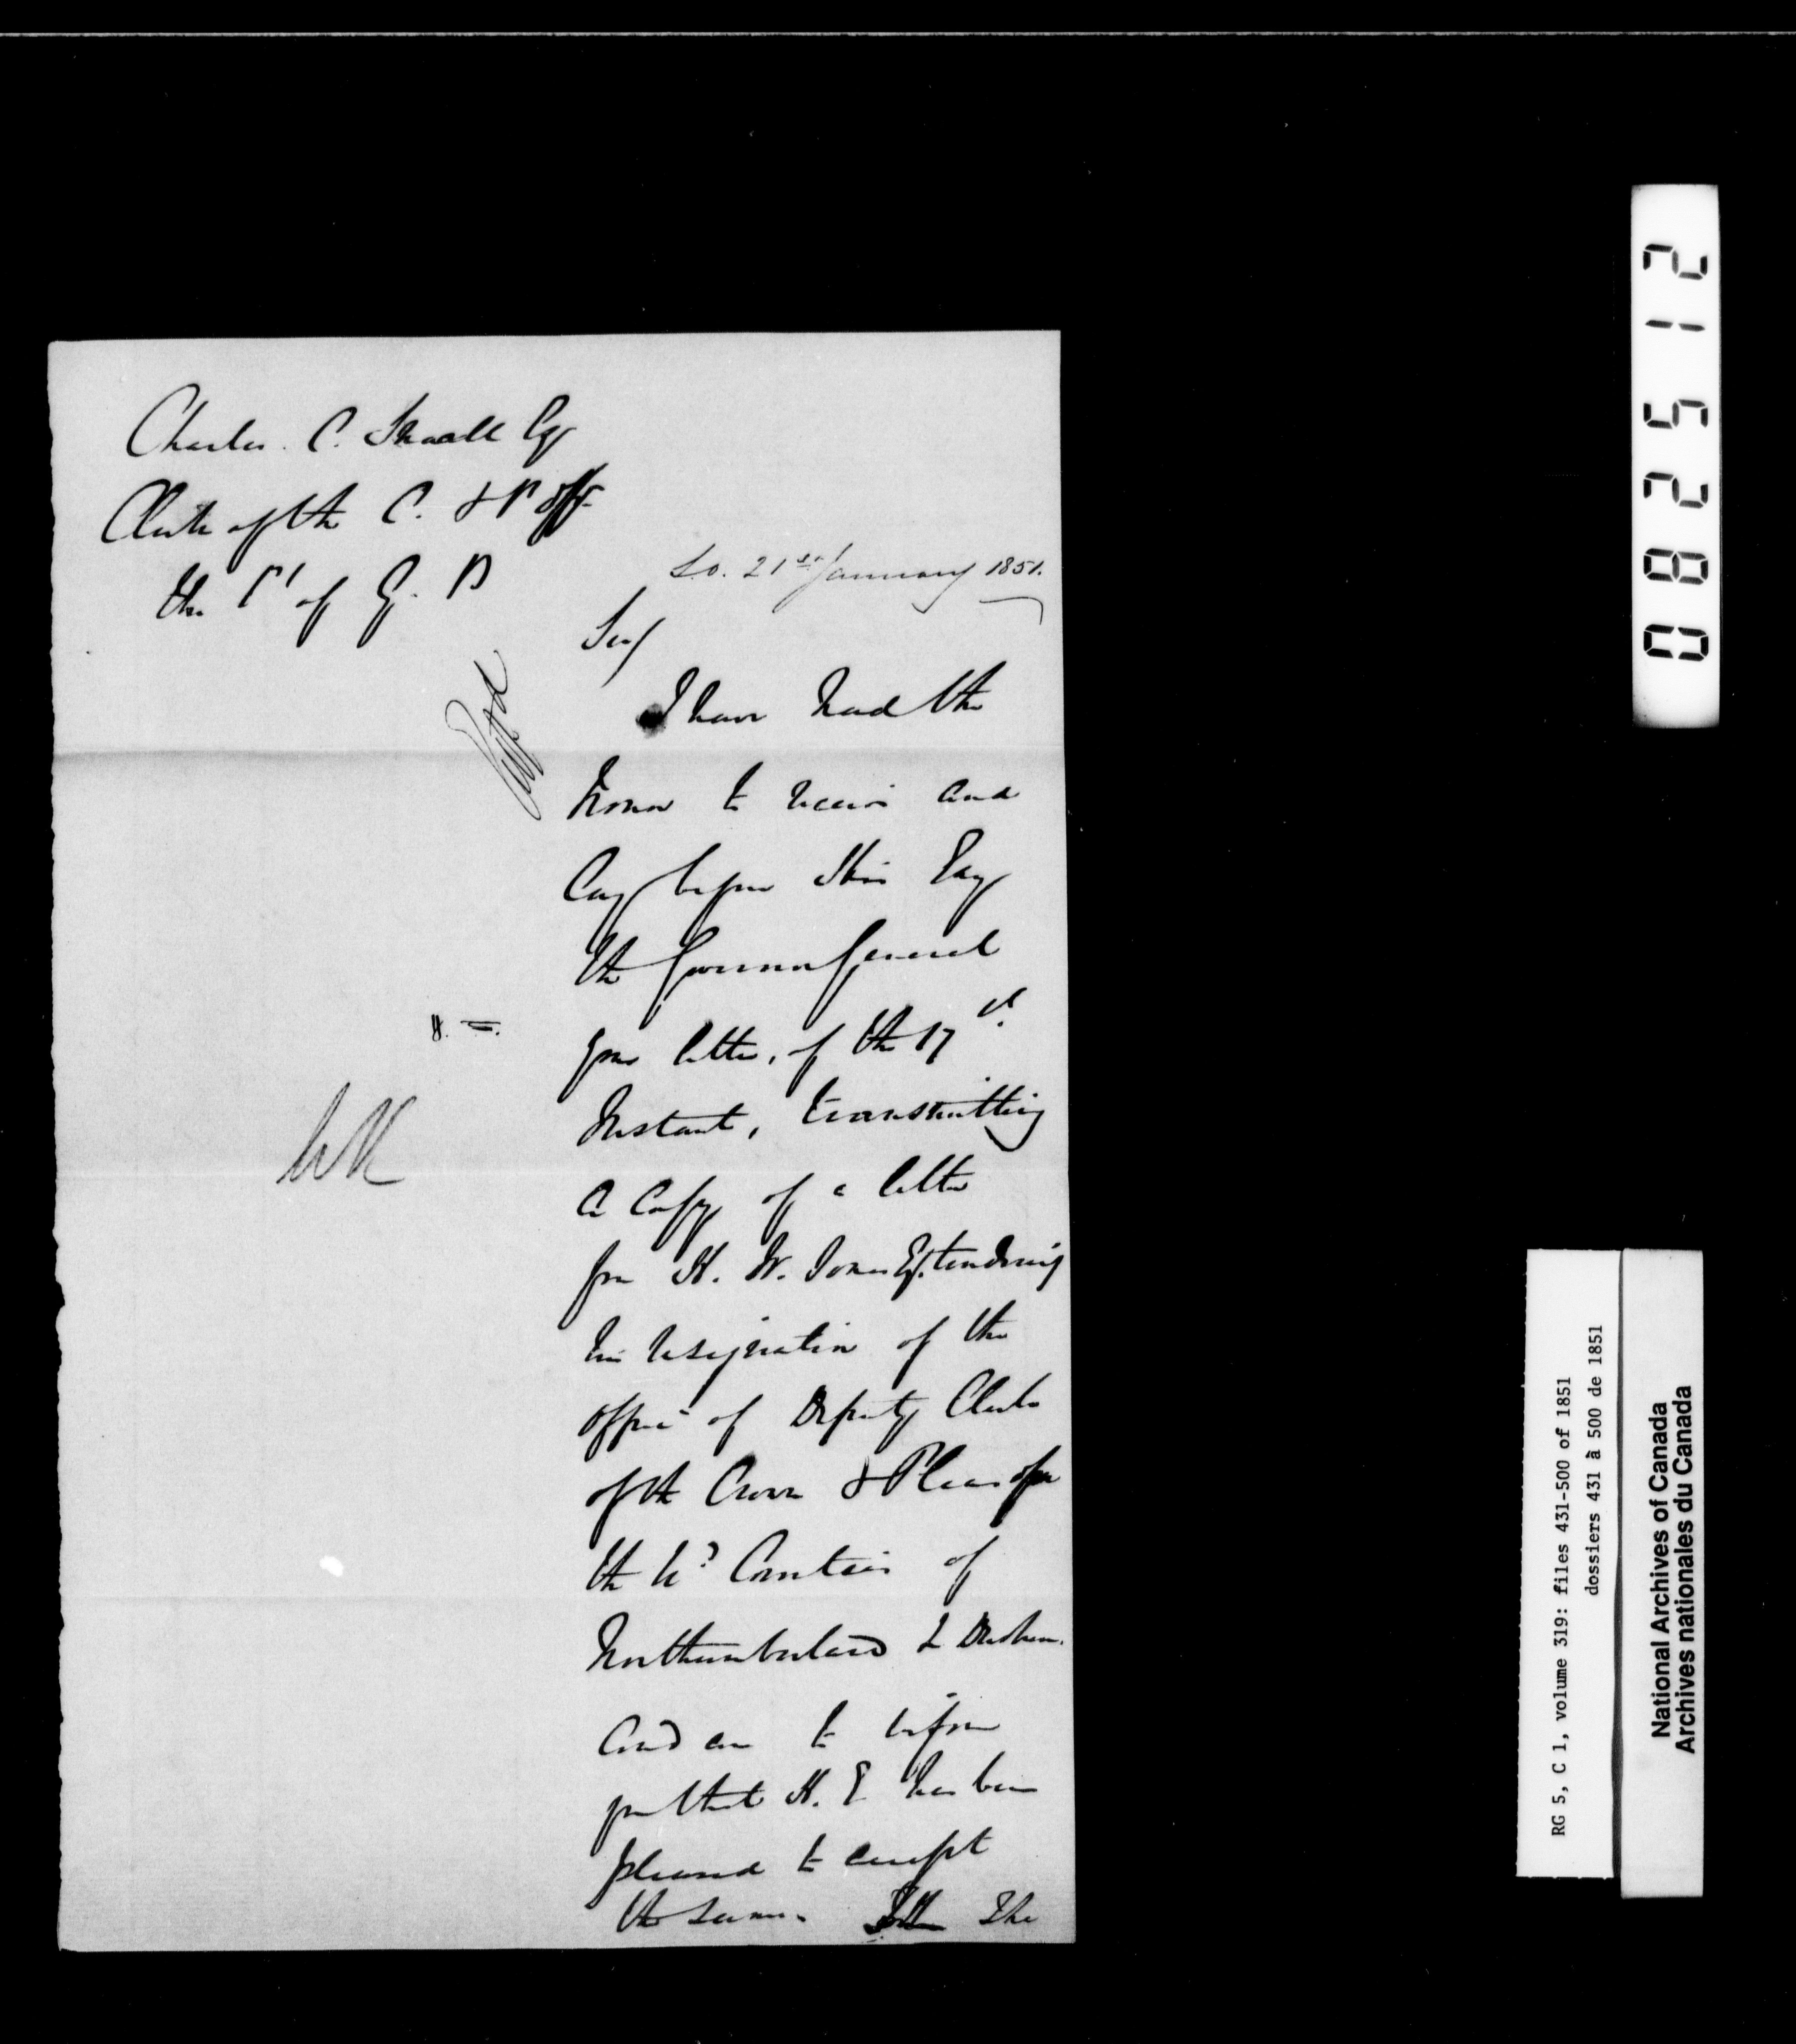 Charles. C. Small Esq
Clerk of the C. & P off
the Ct of Q. B
S.O. 21st January 1851.
Sir/
I have had the
honor to receive and
lay before His Exy
the Governor General
your letter, of the 17th
Instant, transmitting
a copy of a letter
from H. W. Jones Esq. tendering
his resignation of the
office of Deputy Clerk
of the Crown & Pleas for
the Ud Counties of
Northumberland & Durham.
and am to inform
you that H. E has been
pleased to accept
the same. The
082512
RG 5, C 1, volume 319: files 431-500 of 1851
dossiers 431 à 500 de 1851
National Archives of Canada
Archives nationales du Canada